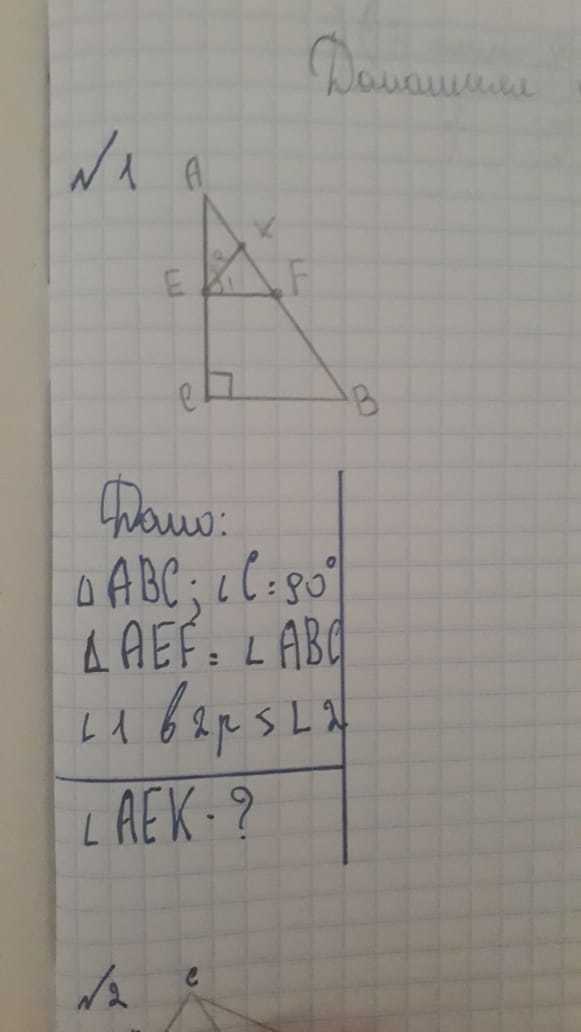 Домашняя
№1
A
K
2
E
1
F
C
B
Дано:
Δ ABC; ∠C = 90°
Δ AEF = ∠ ABC
∠1 в 2р > ∠2
∠AEK - ?
№2
C